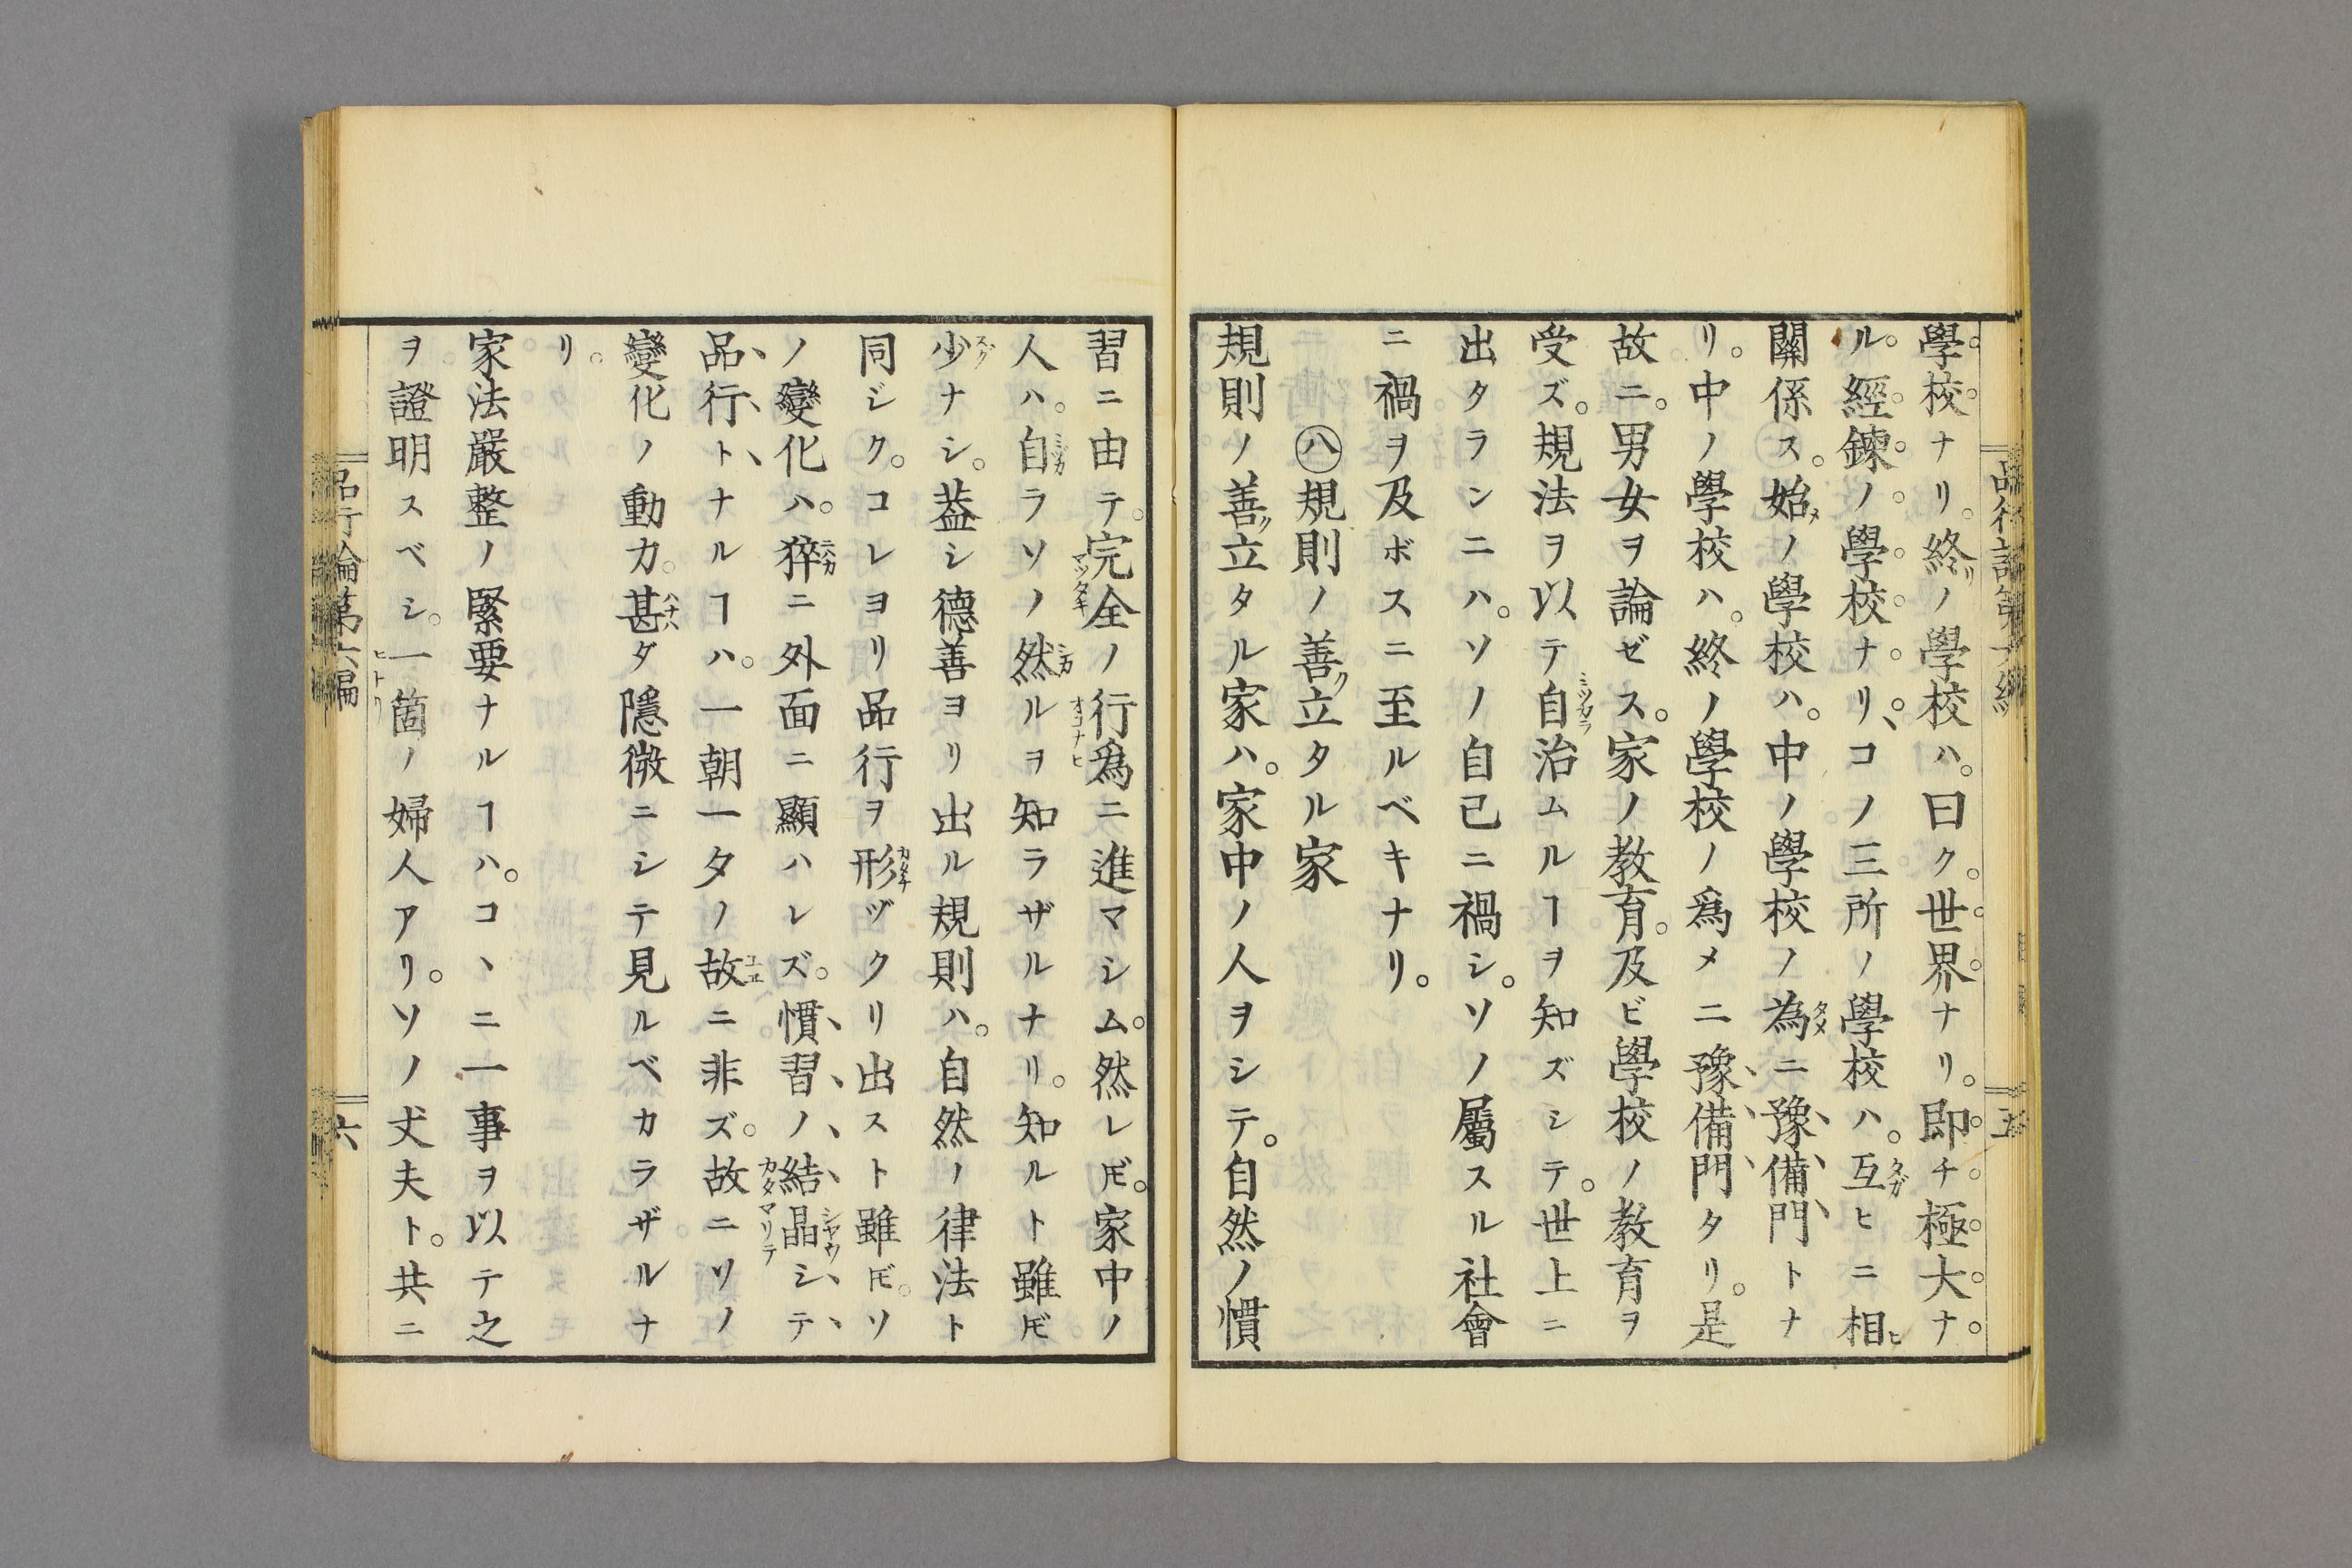 學校ナリ。終リノ學校ハ。曰ク。世界ナリ。即チ極大ナ
ル經鍊ノ學校ナリ、コノ三所ノ學校ハ。互ヒニ相ヒ
關係ス。始メノ學校ハ。中ノ學校ノ為ニ豫備門トナ
リ。中ノ學校ハ。終ノ學校ノ爲メニ豫備門タリ。是
故ニ。男女ヲ論ゼス。家ノ教育。及ビ學校ノ教育ヲ
受ズ。規法ヲ以テ自治ムルヿヲ知ズシテ。世上ニ
出タランニハ。ソノ自己ニ禍シ。ソノ屬スル社會
ニ禍ヲ及ボスニ至ルベキナリ。
㊇規則ノ善ク立タル家
規則ノ善ク立タル家ハ。家中ノ人ヲシテ。自然ノ慣
五
習ニ由テ。完全ノ行爲ニ進マシム。然レ𪜈。家中ノ
人ハ。自ラソノ然ルヲ知ラザルナリ。知ルト雖𪜈
少ナシ。葢シ德善ヨリ出ル規則ハ。自然ノ律法ト
同ジク。コレヨリ品行ヲ形ヅクリ出スト雖𪜈。ソ
ノ變化ハ。猝ニ外面ニ顯ハレズ。慣習ノ結晶シテ
品行トナルヿハ。一朝一夕ノ故ニ非ズ。故ニソノ
變化ノ動力。甚ダ隱微ニシテ見ルベカラザルナ
リ。
家法嚴整ノ緊要ナルヿハ。コヽニ一事ヲ以テ之
ヲ證明スベシ。一箇ノ婦人アリ。ソノ丈夫ト。共ニ
品行論第六編
六